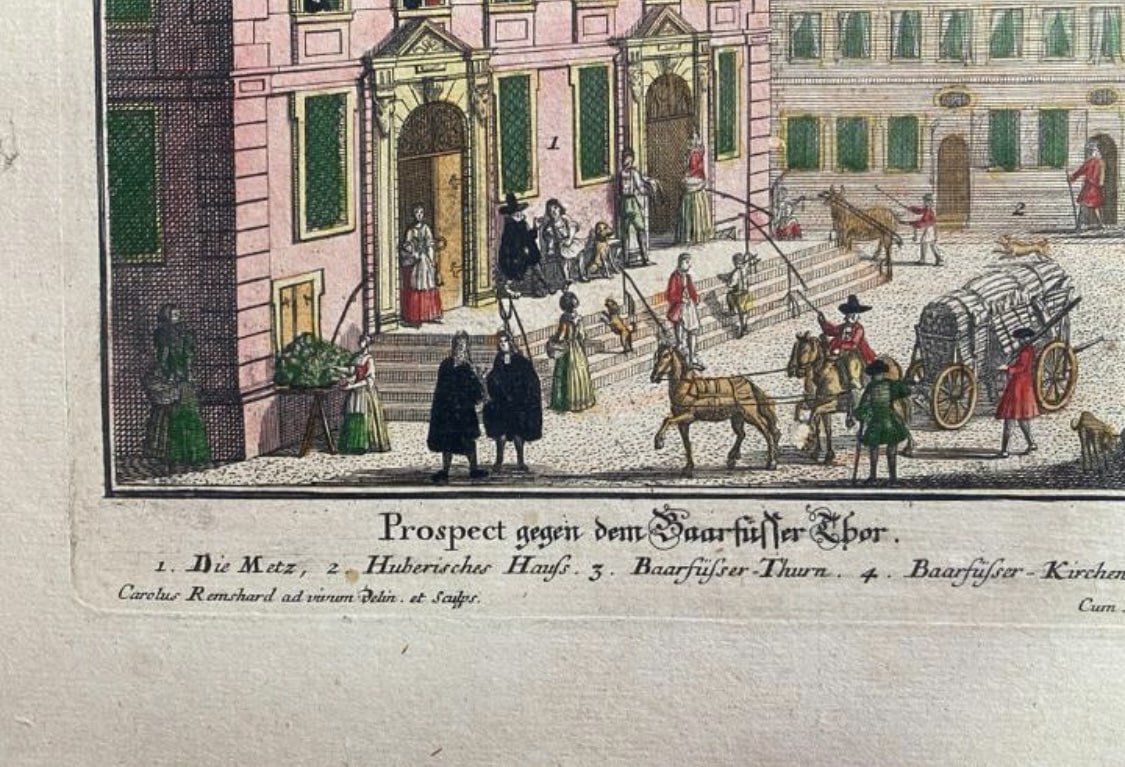 1
2
Prospect gegen dem Baarfüsser Thor.
1. Die Metz, 2. Huberisches Hauss. 3. Baarfüsser-Thurn. 4. Baarfüsser-Kirchen
Carolus Remshard ad vivum Delin. et Sculps.
Cum